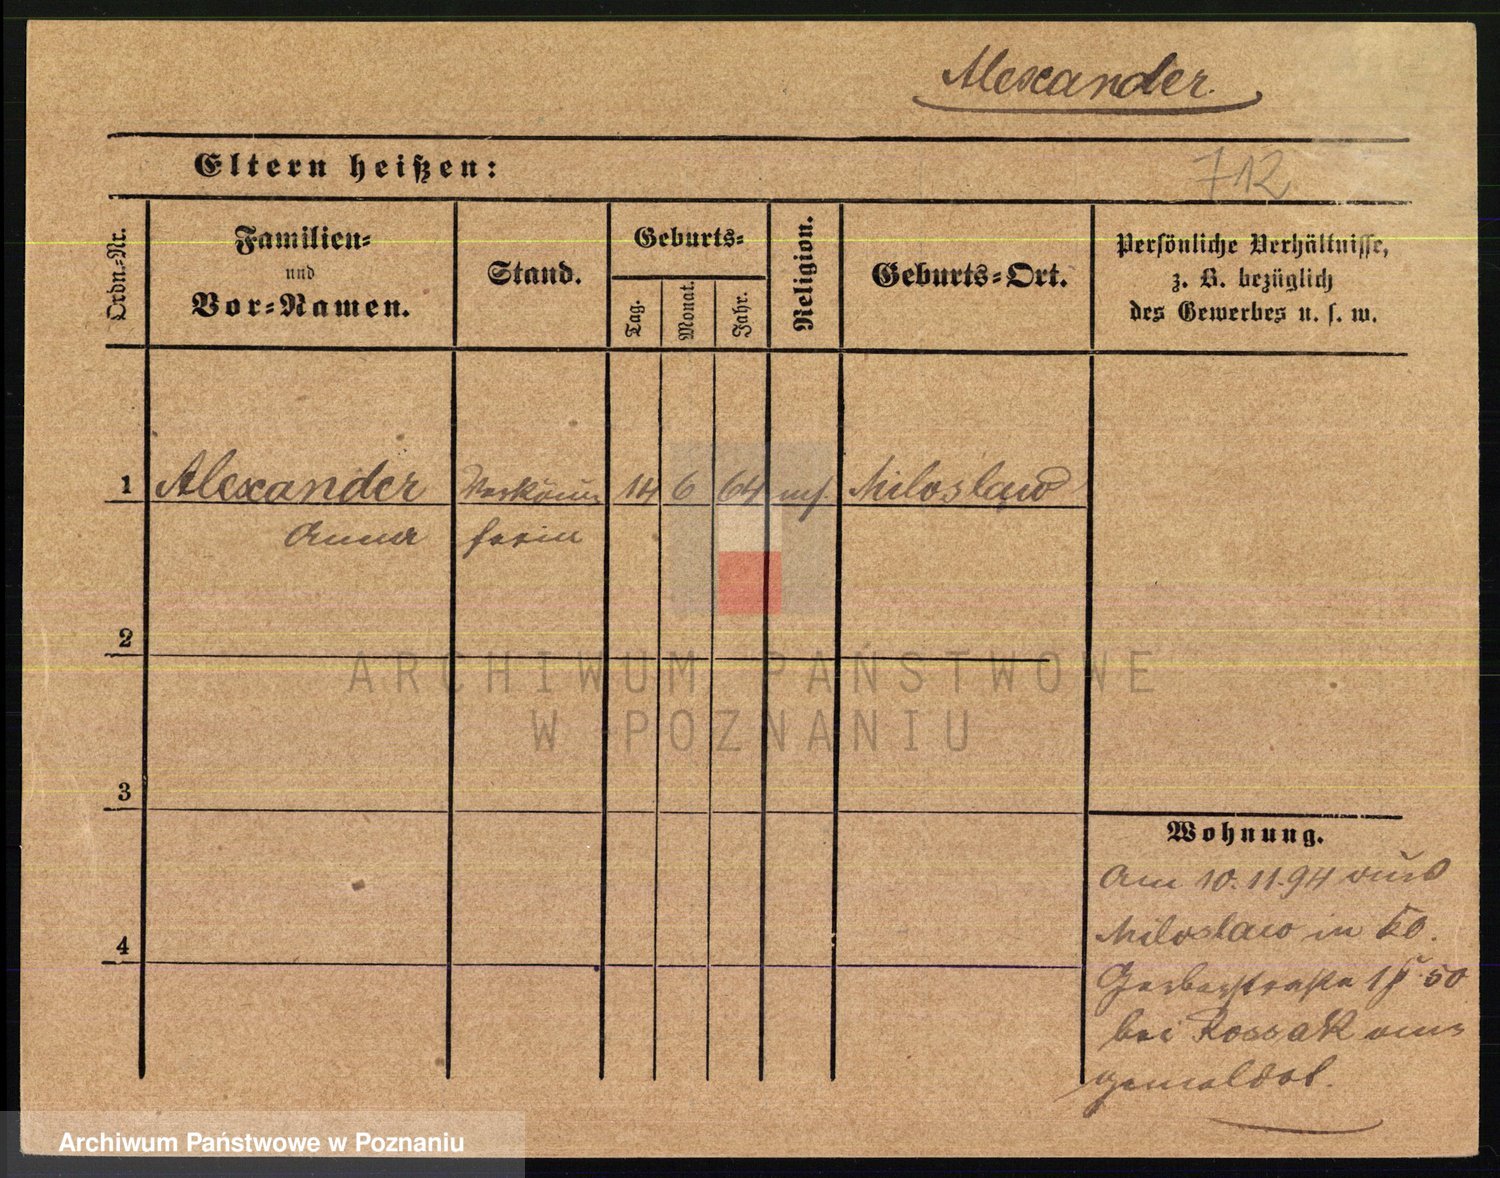 Alexander.
Eltern heißen:
712
Ordn.-Nr.
Familien-
und
Vor-Namen.
Stand.
Geburts-
Tag.
Monat.
Jahr.
Religion.
Geburts-Ort.
Persönliche Verhältnisse,
z. B. bezüglich
des Gewerbes u. s. w.
1 Alexander Verkäu= 14 6 64 Miloslaw
Anna ferin
2
ARCHIWUM PAŃSTWOWE
W POZNANIU
3
Wohnung.
Am 10.11.94 aus
Miloslaw in
Gerberstraße 50
bei Kossak an=
gemeldet.
4
Archiwum Państwowe w Poznaniu